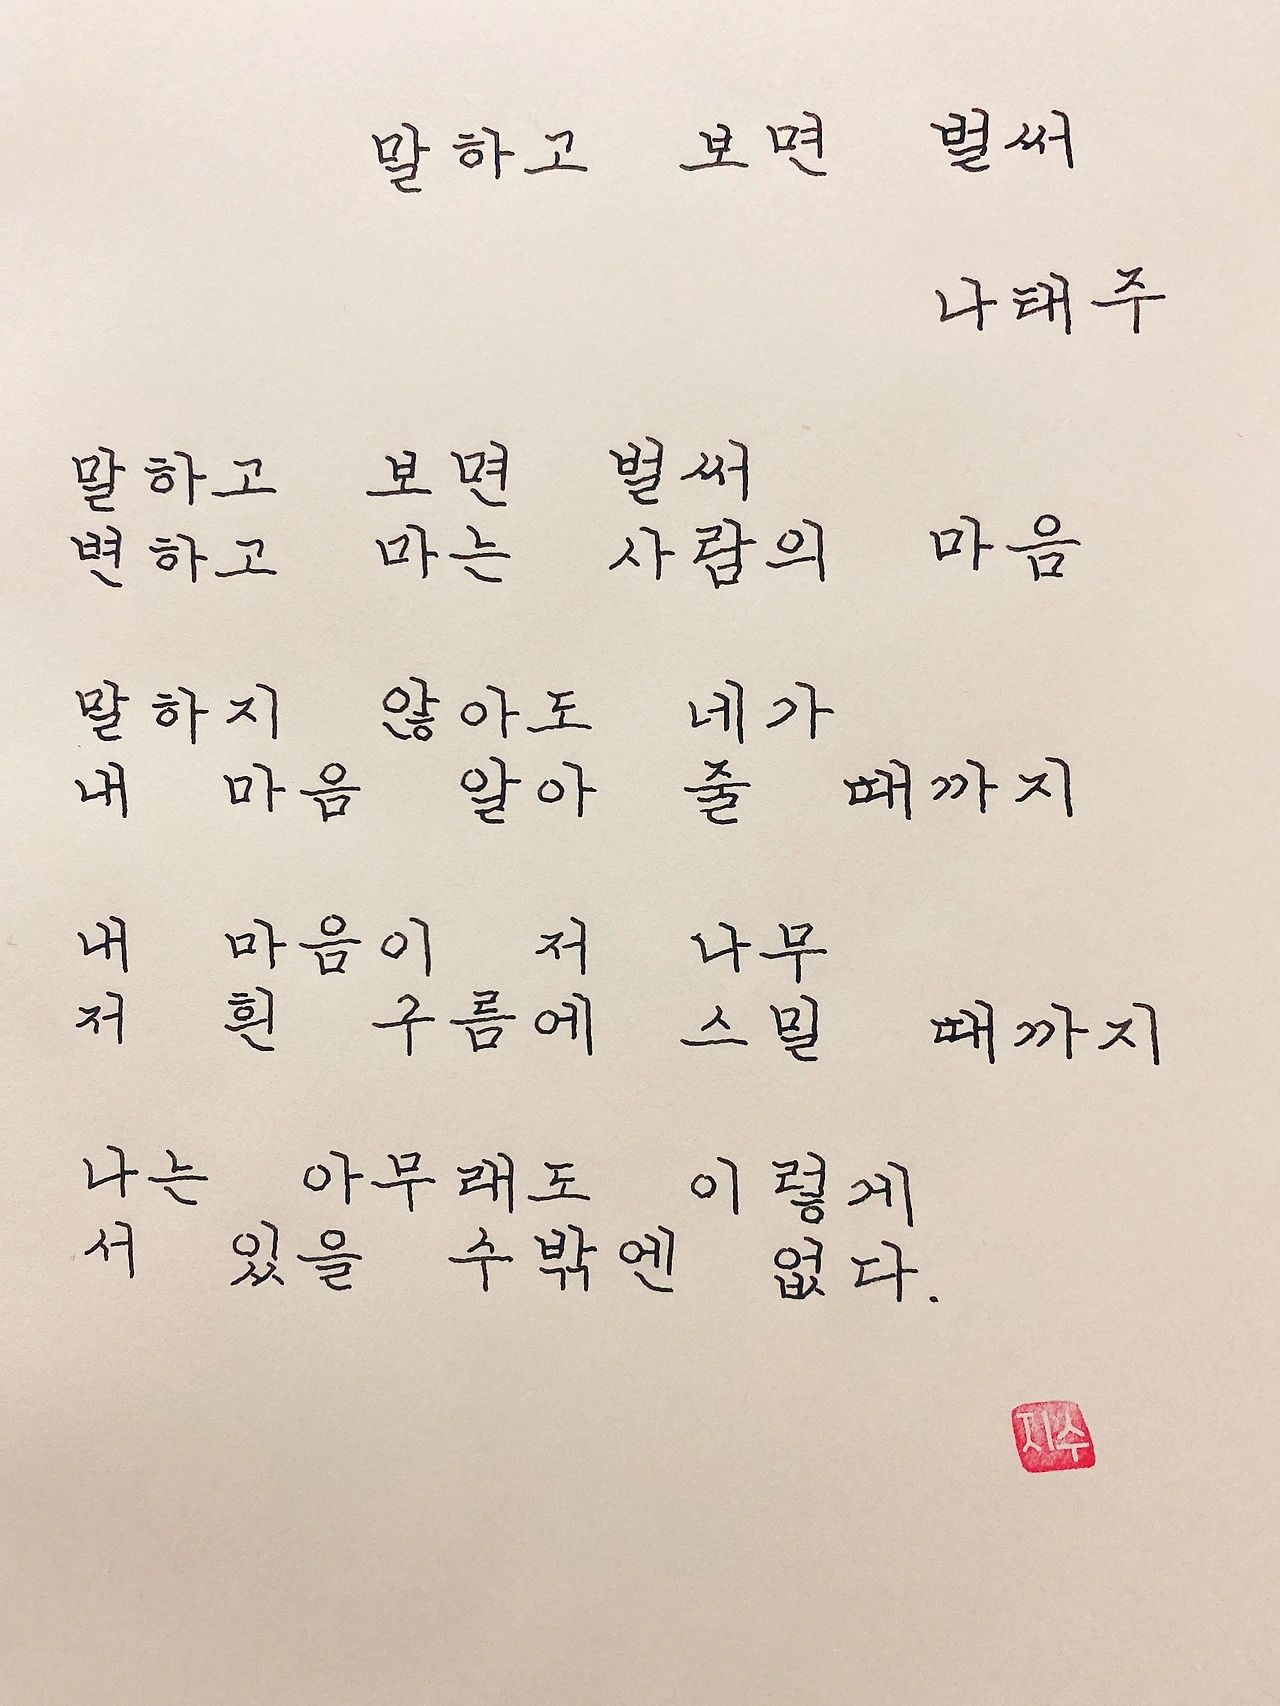 말하고 보면 벌써
나태주
말하고 보면 벌써
변하고 마는 사람의 마음
말하지 않아도 네가
내 마음 알아 줄 때까지
내 마음이 저 나무
저 흰 구름에 스밀 때까지
나는 아무래도 이렇게
서 있을 수밖엔 없다.
지수